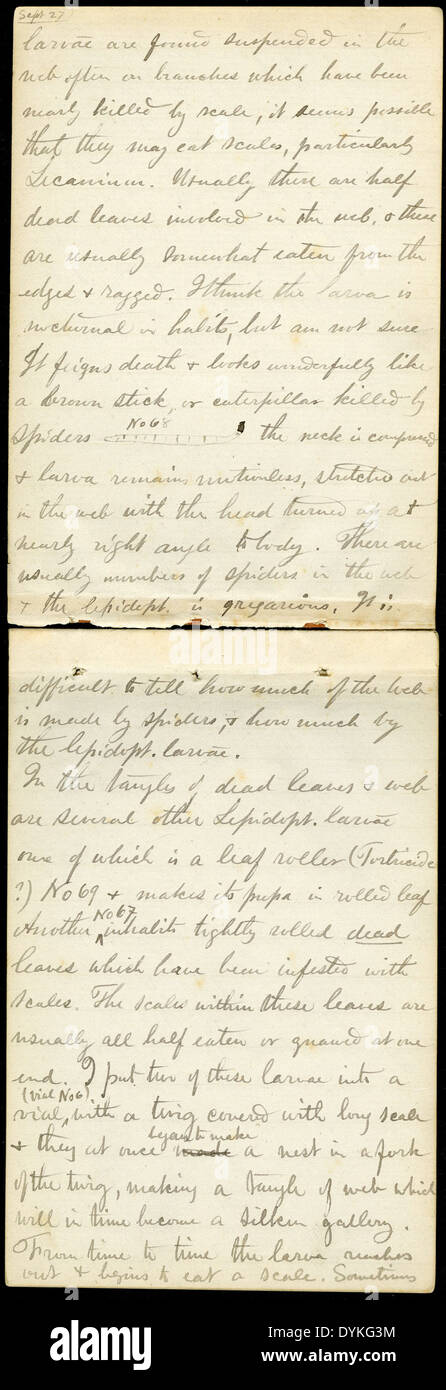 Sept 27
larvae are found suspended in the
web often on branches which have been
nearly killed by scale, it seems possible
that they may eat scales, particularly
Lecanium. Usually there are half
dead leaves involved in the web, & these
are usually somewhat eaten from the
edges & ragged. I think the larva is
nocturnal in habits, but am not sure
It feigns death & looks wonderfully like
a brown stick, or caterpillar killed by
spiders No 68 the neck is compressed
& larva remains motionless, stretched out
in the web with the head turned up at
nearly right angle to body. There are
usually numbers of spiders in the web
& the lepidopt. is gregarious. It is
difficult to tell how much of the web
is made by spiders, & how much by
the lepidopt. larvae.
In the tangles of dead leaves & web
are several other Lepidopt. larvae
one of which is a leaf roller (Tortricidae
?) No 69 & makes its pupa in rolled leaf
Another No 67 inhabits tightly rolled dead
leaves which have been infested with
scales. The scales within these leaves are
usually all half eaten or gnawed at one
end. I put two of these larvae into a
(vial No 6)
vial, with a twig covered with long scale
& they at once made began to make a nest in a fork
of the twig, making a tangle of web which
will in time become a silken gallery.
From time to time the larva reaches
out & begins to eat a scale. Sometimes
alamy
alamy
Image ID: DYKG3M
www.alamy.com